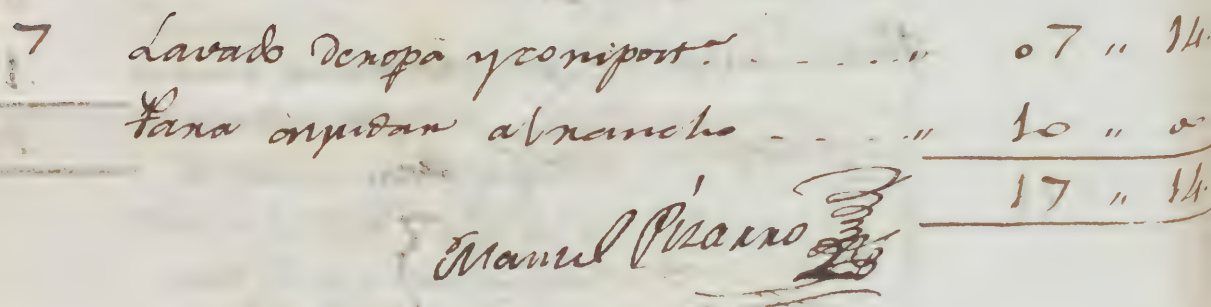 7 Lavado deropa y composta. . . . . . " 07 " 14
Para ayudar al rancho . . . . " 10 " 0
17 " 14
Manuel Pizarro